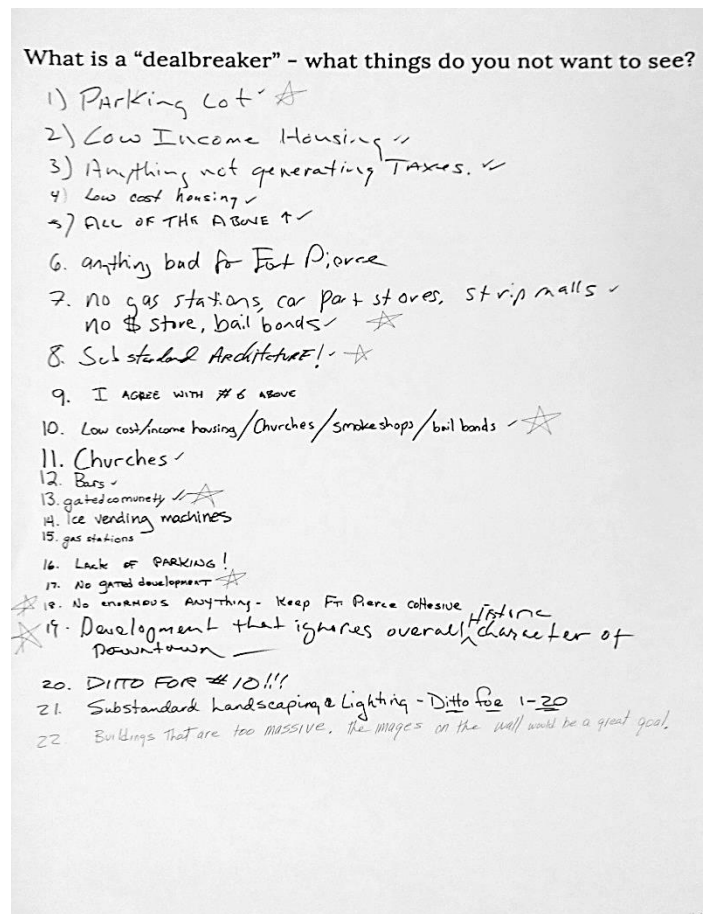 What is a “dealbreaker” – what things do you not want to see?
1) Parking Lot
2) Low Income Housing
3) Anything not generating Taxes.
4) Low cost housing
5) ALL OF THE ABOVE ↑
6. anything bad for Fort Pierce
7. no gas stations, car part stores, strip malls
no $ store, bail bonds
8. Substandard ArchitctURE!
9. I AGREE WITH #6 ABOVE
10. Low cost/income housing/Churches/smoke shops/bail bonds
11. Churches
12. Bars
13. gated comunety
14. Ice vending machines
15. gas stations
16. LACK OF PARKING!
17. No gated development
18. No enormous Anything - Keep Ft Pierce cohesive
19. Development that ignores overall Historic character of
Downtown
20. DITTO FOR #10!!!
21. Substandard Landscaping & Lighting - Ditto for 1-20
22 Buildings that are too massive. The images on the wall would be a great goal.